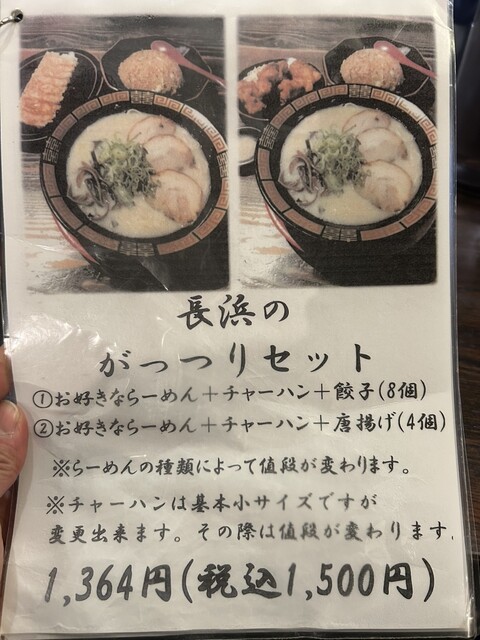 長浜の
がっつりセット
①お好きならーめん＋チャーハン＋餃子(8個)
②お好きならーめん＋チャーハン＋唐揚げ(4個)
※らーめんの種類によって値段が変わります。
※チャーハンは基本小サイズですが
変更出来ます。その際は値段が変わります.
1,364円(税込1,500円)